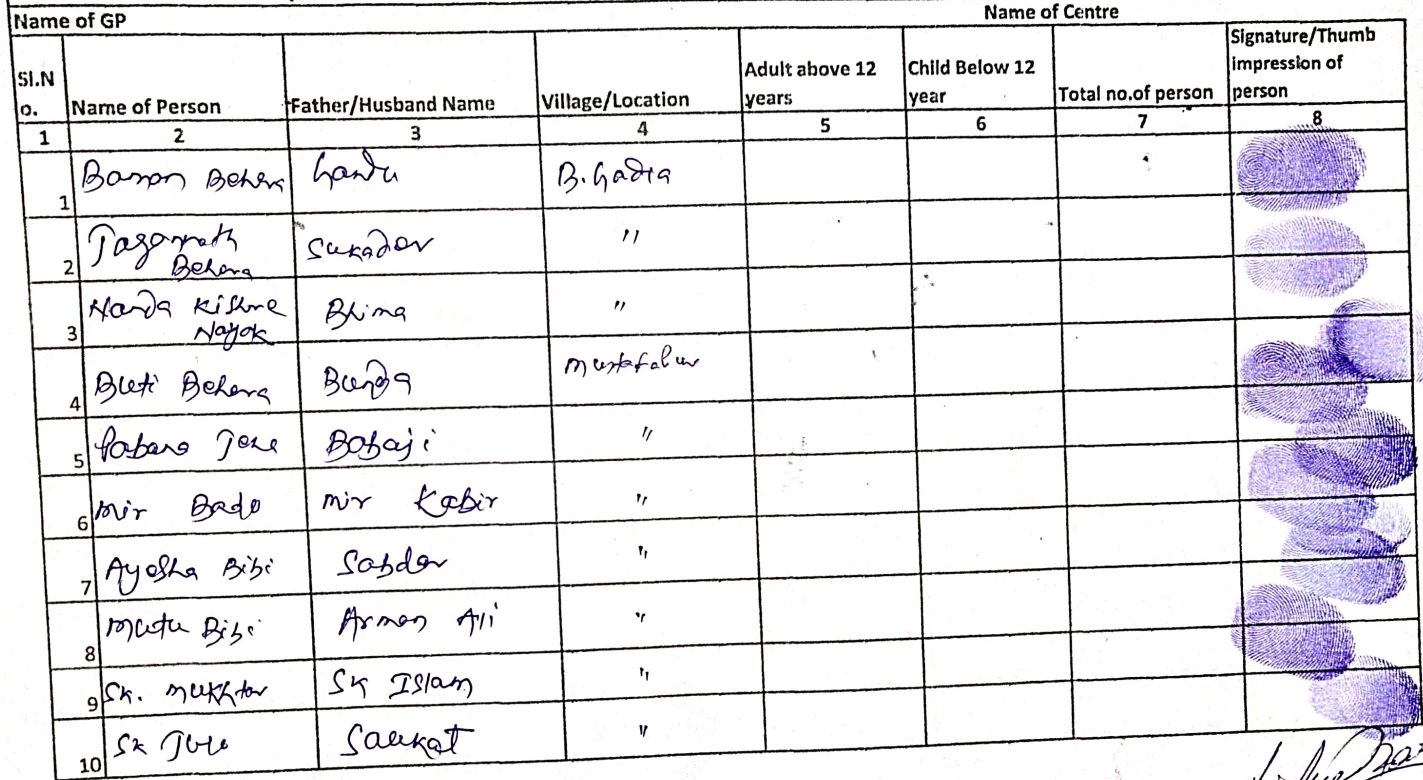 Name of GP Name of Centre
Sl.No. Name of Person Father/Husband Name Village/Location Adult above 12 years Child Below 12 year Total no.of person Signature/Thumb impression of person
1 2 3 4 5 6 7 8
1 Baman Behera Gandu B. Gadia
2 Jaganath Behera Sukadev "
3 Nanda Kishre Nayak Bhima "
4 Buti Behera Bunda
5 Pabana Jena Babaji "
6 Mir Bado Mir Kabir "
7 Ayesha Bibi Sabder "
8 Mutu Bibi Arman Ali "
9 Sk. Mukhtar Sk Islam "
10 Sk Saukat "